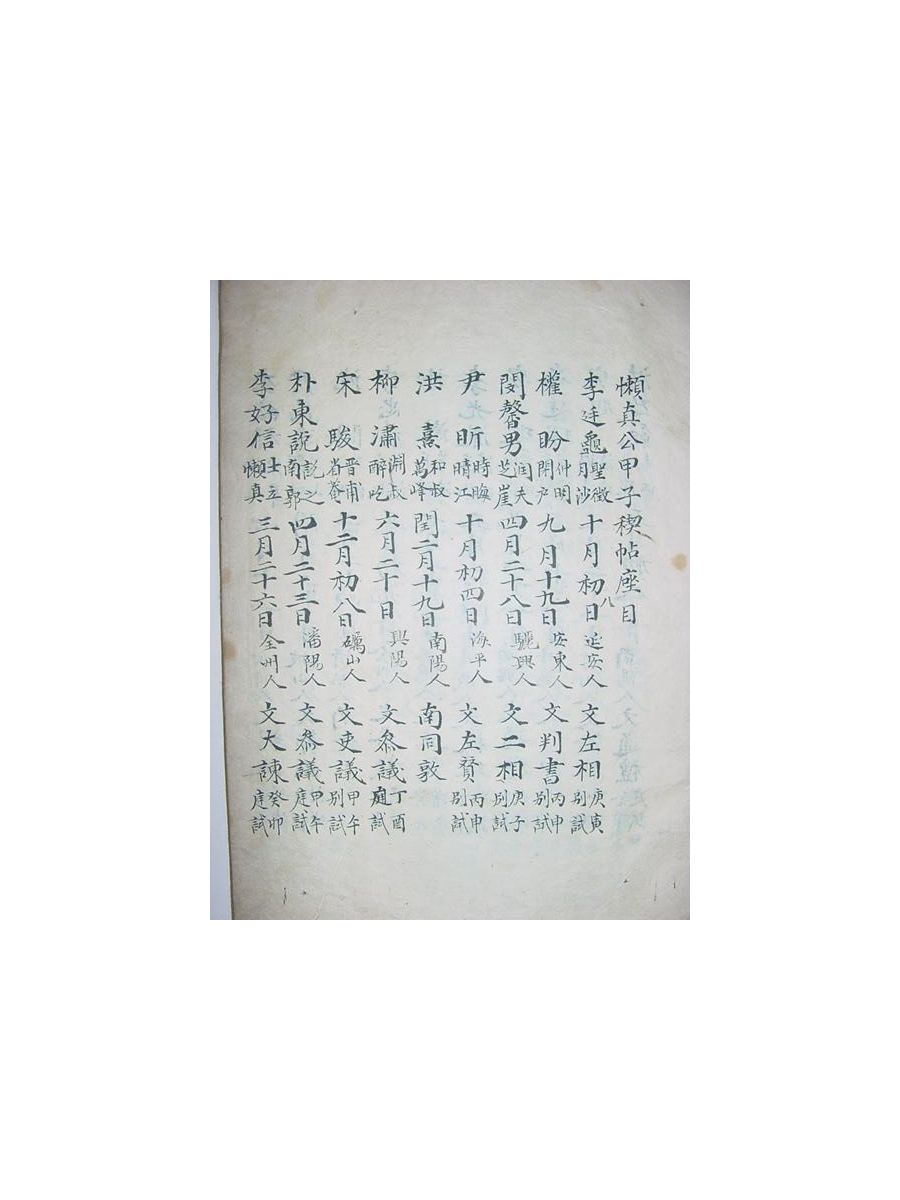 懶真公甲子稧帖座目
李廷龜聖徵月沙十月初八日延安人文左相庚寅別試
權盼仲明閑戶九月十九日安東人文判書丙申別試
閔馨男閏夫芝崖四月二十八日驪興人文二相庚子別試
尹昕時晦晴江十月初四日海平人文左贊丙申別試
洪憙和叔萬峰閏二月十九日南陽人南同敦
柳潚淵叔醉吃六月二十日興陽人文參議丁酉庭試
宋駿晋甫省菴十二月初八日礪山人文吏議甲午別試
朴東說說之南郭四月二十三日潘陽人文參議甲午庭試
李好信士立懶真三月二十六日全州人文大諫癸卯庭試